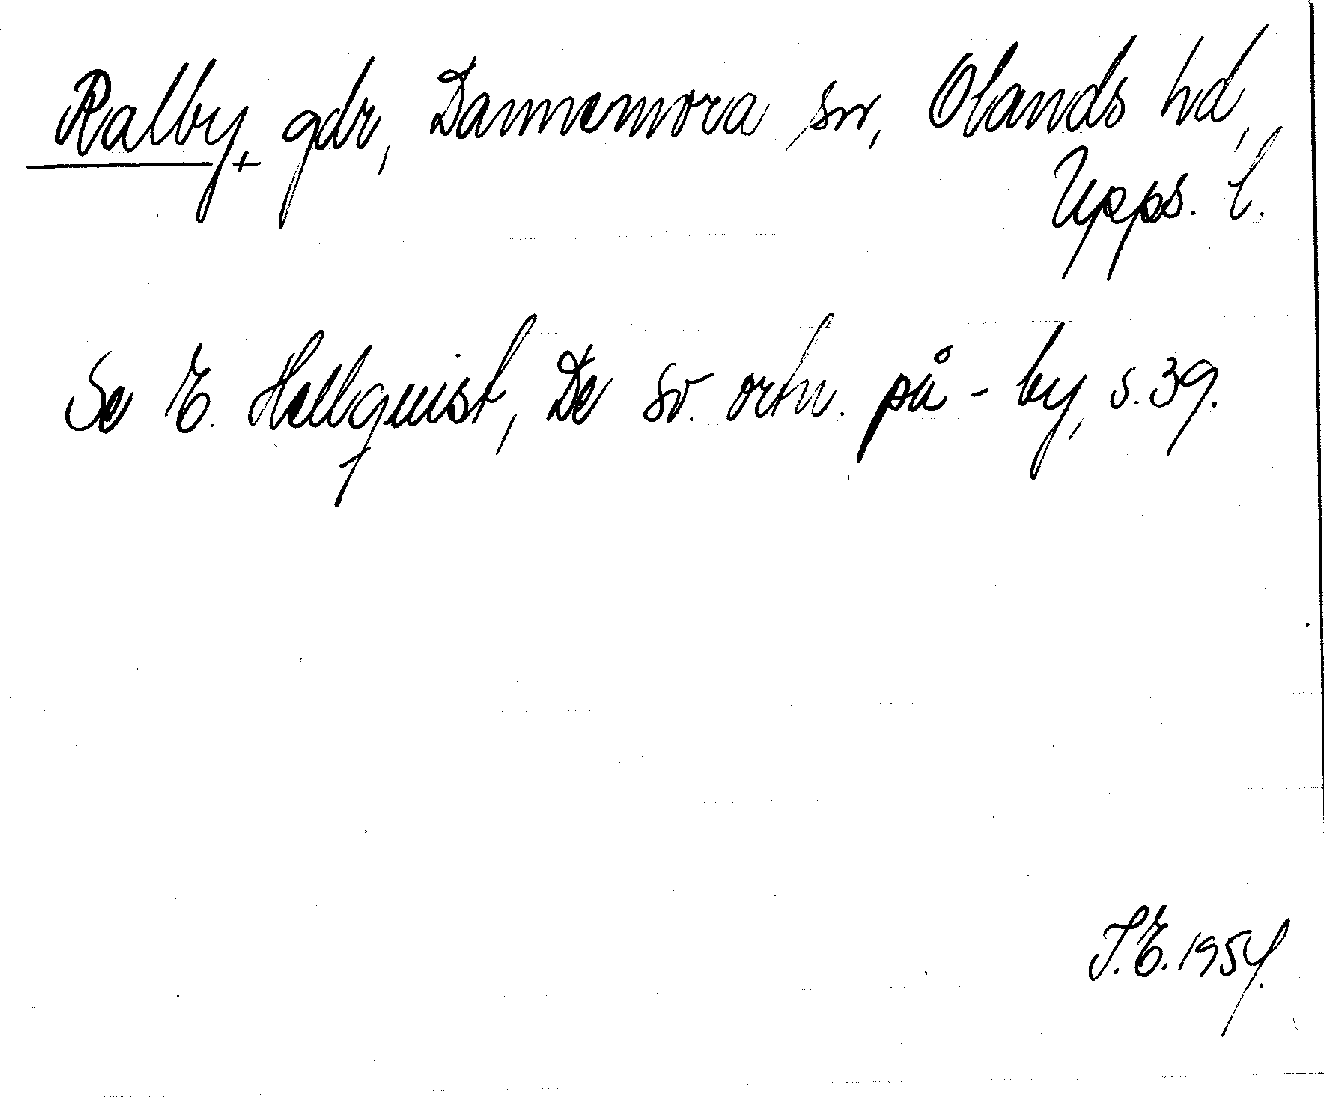 Ralby, gdr, Dannemora sn, Olands hd,
Upps. l.
Se E. Hellquist, De sv. ortn. på -by, s. 39.
S.E. 1954.